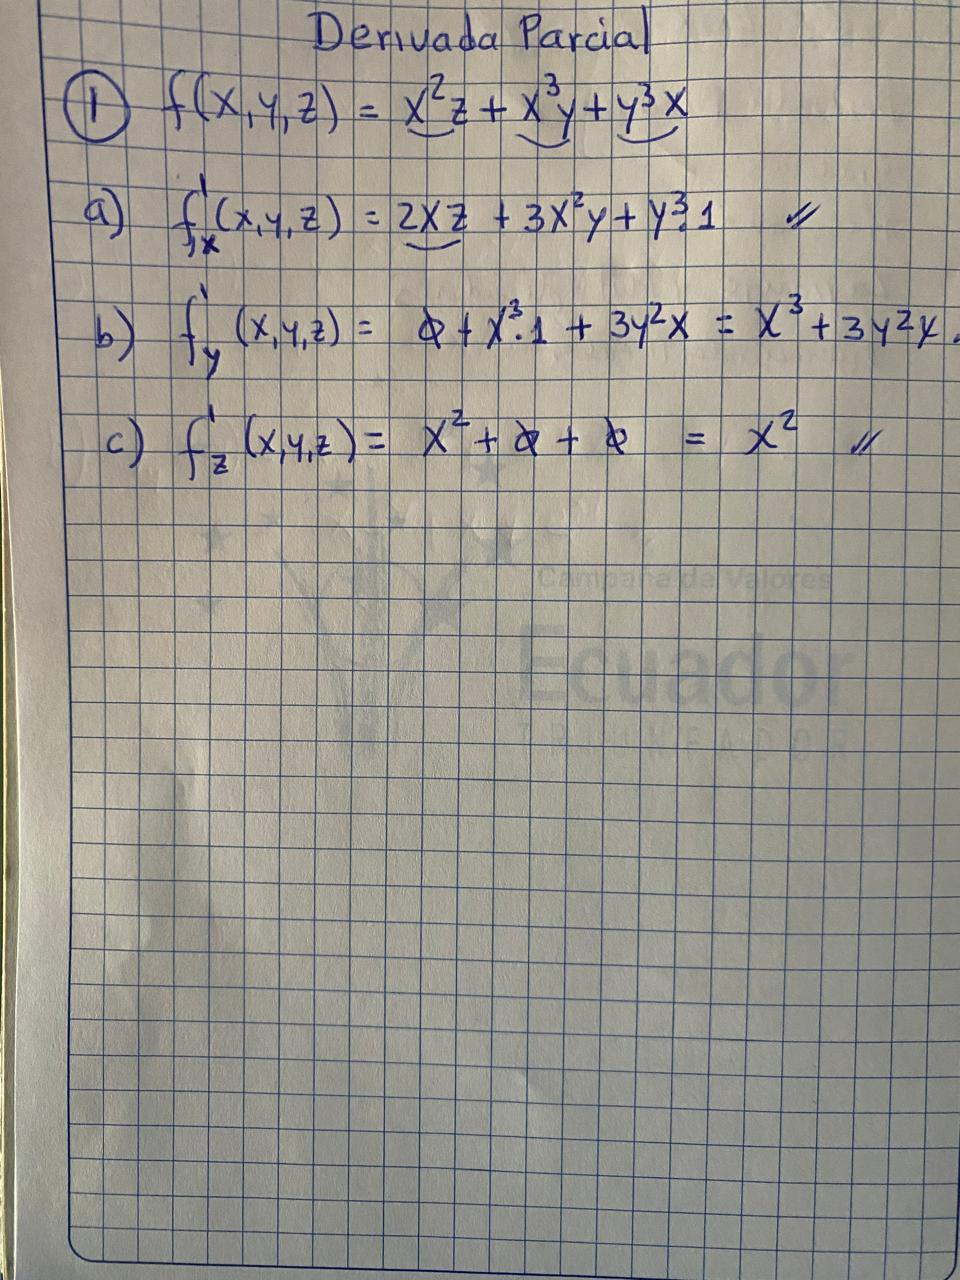 Derivada Parcial
① f(x,y,z) = x²z + x³y + y³x
a) f'x(x,y,z) = 2xz + 3x²y + y³.1 //
b) f'y (x,y,z) = 0 + x³.1 + 3y²x = x³ + 3y²x.
c) f'z (x,y,z) = x² + 0 + 0 = x² //
Campaña de Valores
Ecuador
TRIUNFADOR